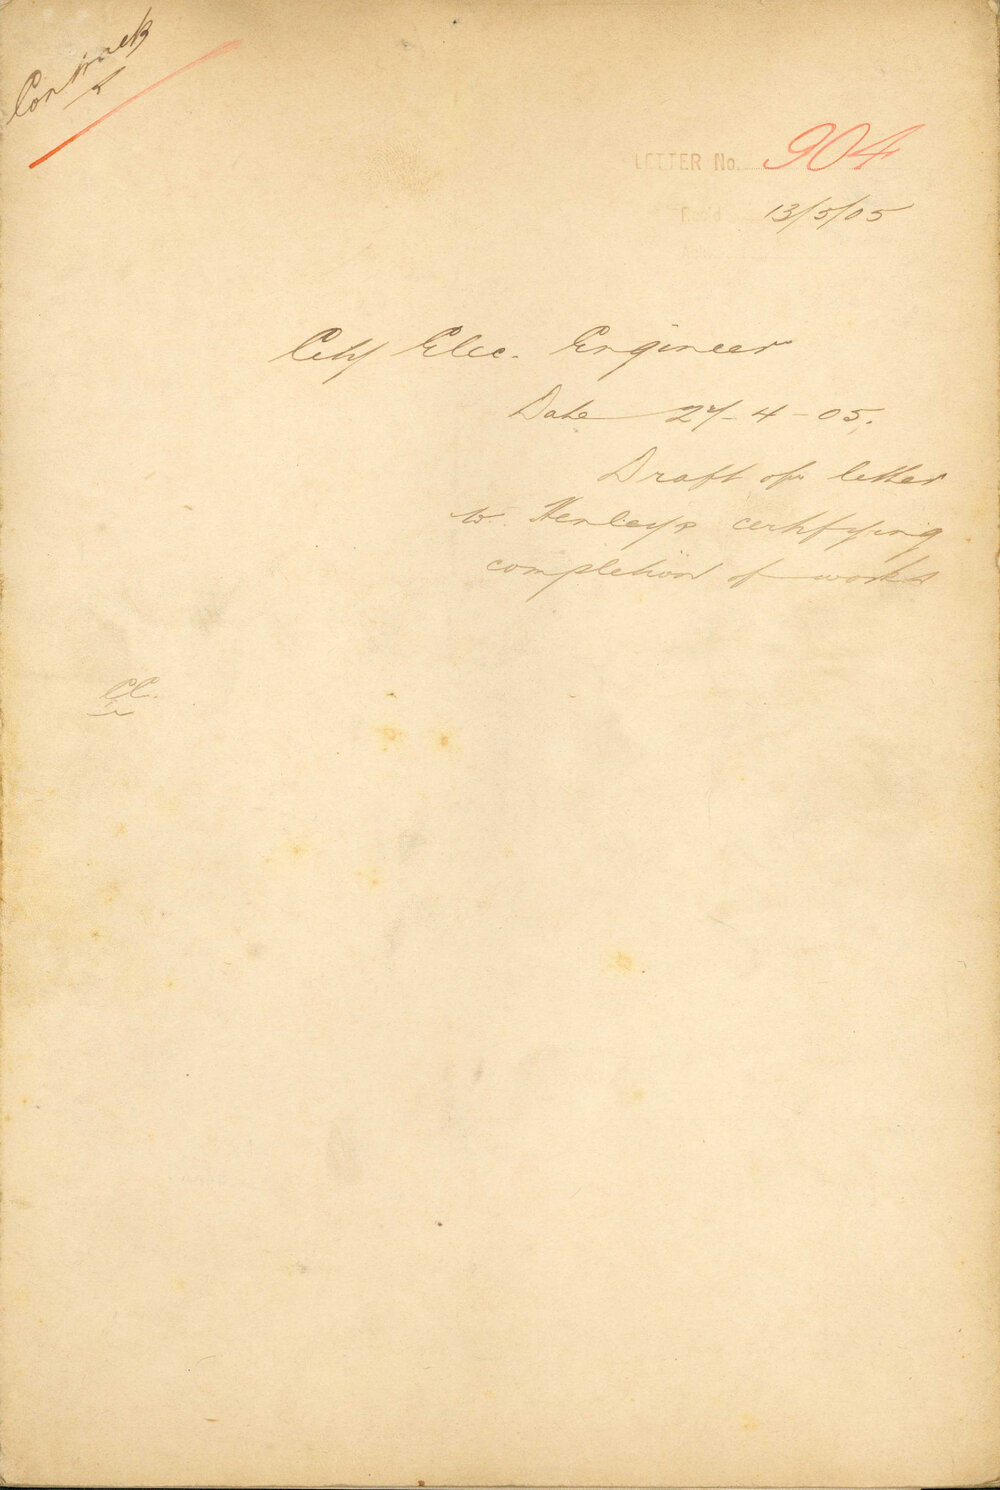 Contract
LETTER No. 904
Rec'd 13/5/05
City Elec. Engineer
Date 27-4-05.
Draft of letter
to Henleys certifying
completion of works
CC.